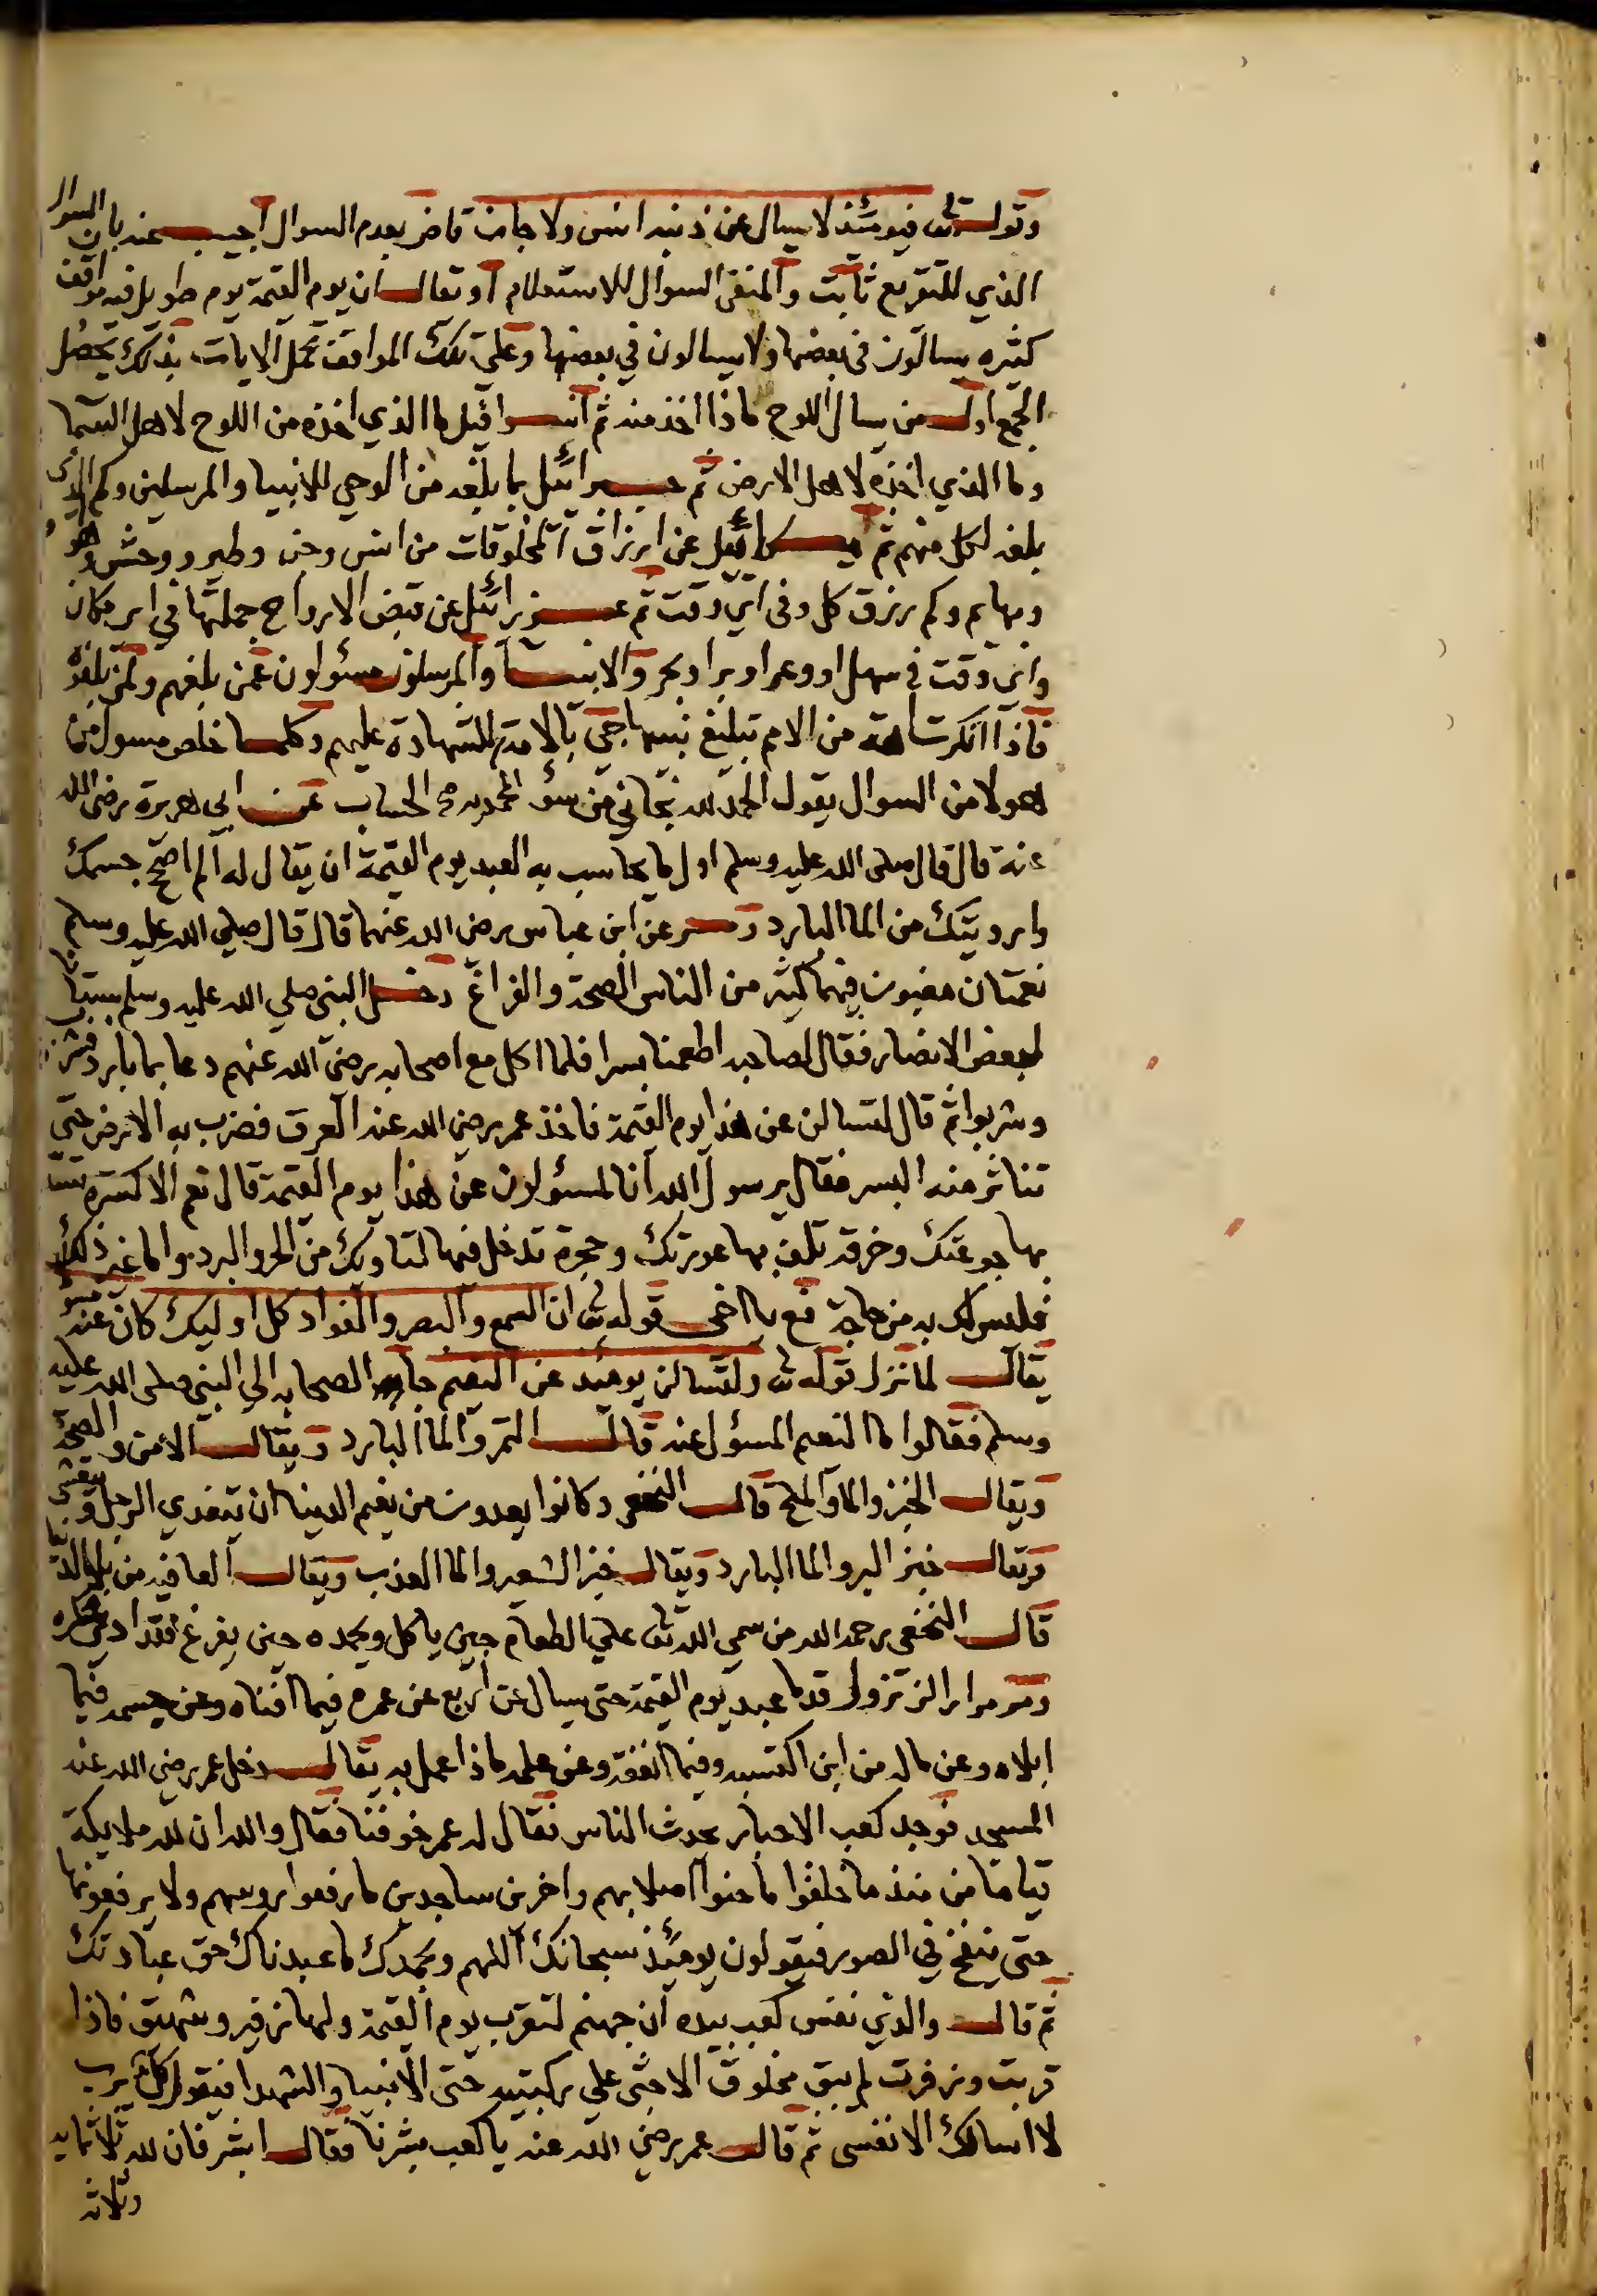 وقوله تعالى فيومئذ لا يسال عن ذنبه انس ولا جان قاض بعدم السوال اجيب عنه بان السوال
الذي للتقريع ثابت والمنفى السوال للاستعلام او تقال ان يوم القيمة يوم طويل فيه مواقف
كثيره يسالون فى بعضها ولا يسالون في بعضها وعلى تلك المواقف تحمل الايات بذلك يحصل
الجمع اول من يسال اللوح ماذا اخذ منه ثم اسرافيل ما الذي اخذه من اللوح لاهل السما
وما الذي اخذه لاهل الارض ثم جبرائيل بما بلغه من الوحي للانبيا والمرسلين وكم الذى
بلغه لكل منهم ثم ميكائيل عن ارزاق المخلوقات من انس وجن وطير ووحش وهو
وبهايم وكم رزق كل وفى اي وقت ثم عزرائيل عن قبض الارواح جملتها في اى مكان
واى وقت فى سهل او وعر او بر او بحر والانبيا والمرسلون مسئولون عمن بلغهم ولمن بلغوه
فاذا انكرت امة من الامم تبليغ نبيها جي بالامة للشهادة عليهم وكلما خلص مسول من
هولا من السوال يقول الحمد لله نجاني من سؤ الحساب عن ابي هريرة رضى الله
عنه قال قال صلى الله عليه وسلم اول ما يحاسب به العبد يوم القيمة ان يقال له الم اصح جسمك
وارويتك من الما البارد وعن ابن عباس رضي الله عنهما قال قال صلي الله عليه وسلم
نعمتان مغبون فيهما كثير من الناس الصحة والفراغ دخل النبى صلي الله عليه وسلم بستانا
لبعض الانصار فقال لصاحبه اطعمنا بسرا فلما اكل مع اصحابه رضي الله عنهم دعا بما بارد فشرب
وشربوا ثم قال لتسالن عن هذا يوم القيمة فاخذ عمر رضي الله عنه العرق فضرب به الارض حتى
تناثر منه البسر فقال يرسول الله انا لمسئولون عن هذا يوم القيمة قال نعم الا كسرة تسد
بها جوعتك وخرقة تلف بها عورتك وحجرة تدخل فيها لتاويك من الحر والبرد واما غير ذلك
فليس لك به من حاجة فع يا اخى قوله تعالى ان السمع والبصر والفواد كل اوليك كان عنه مسئولا
يقال لما نزل قوله تعالى ولتسالن يومئذ عن النعيم جا الصحابه الي النبي صلى الله عليه
وسلم فقالوا ما النعيم المسؤل عنه قال التمر والما البارد ويقال الامن والصحة
ويقال الخبز والما والملح قال النخعي وكانوا يعدون من نعيم الدينا ان يتغدي الرجل ويتعشى
ويقال خبز البر والما البارد ويقال خبز الشعير والما العذب ويقال العافيه من بلا الدنيا
قال النخعي رحمه الله من سمي الله تعالى علي الطعام حين ياكل ويحمده حين يفرغ فقد ادى شكره
ومر مرارا لن تزول قدما عبد يوم القيمة حتى يسال عن اربع عن عمره فيما افناه وعن جسمه فيما
ابلاه وعن ماله من اين اكتسبه وفيما انفقه وعن علمه ماذا عمل به يقال دخل عمر رضي الله عنه
المسجد فوجد كعب الاحبار يحدث الناس فقال له عمر خوفنا فقال والله ان لله ملايكة
قياما من منذ ما خلقوا ما حنوا اصلابهم واخرين ساجدين ما رفعوا رؤسهم ولا يرفعونها
حتى ينفخ في الصور فيقولون يومئذ سبحانك اللهم وبحمدك ما عبدناك حق عبادتك
ثم قال والذي نفس كعب بيده ان جهنم لتقرب يوم القيمة ولها زفير وشهيق فاذا
قربت وزفرت لم يبق مخلوق الا جثى علي ركبتيه حتى الانبيا والشهدا فيقول كل يرب
لا اسالك الا نفسى ثم قال عمر رضي الله عنه يا كعب بشرنا فقال ابشر فان لله ثلاثمايه
وثلاثه